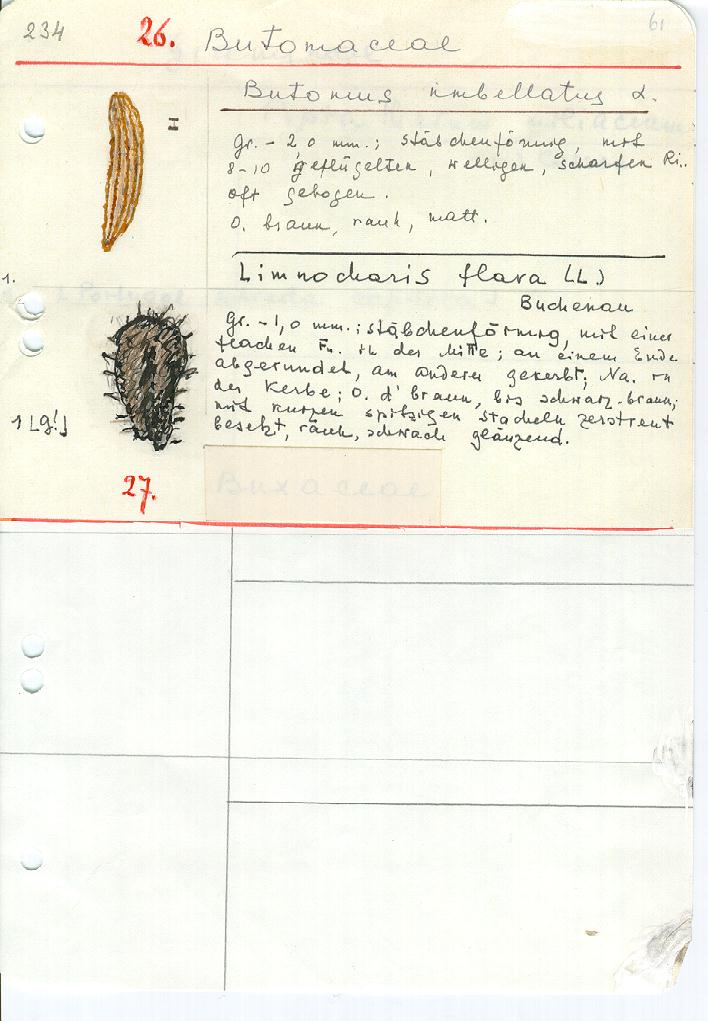 234
61
26. Butomaceae
Butomus umbellatus L.
Gr. - 2,0 mm.; stäbchenförmig, mit
8-10 geflügelten, welligen, scharfen Ri..
oft gebogen.
O. braun, rauh, matt.
1.
Limnocharis flava (L.)
Buchenau
Gr. - 1,0 mm.; stäbchenförmig, mit einer
flachen Fu. in der Mitte; an einem Ende
abgerundet, am anderen gekerbt; Na. in
der Kerbe; O. d' braun, bis schwarz-braun;
mit kurzen spitzigen Stacheln zerstreut
besetzt, rauh, schwach glänzend.
1 [g!]
27.
Buxaceae